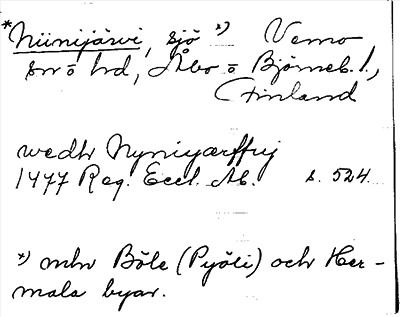 *Niinijärvi, sjö *) Vemo
sn o hd, Åbo o Björneb. l.,
Finland
wedh Nyniyærffuj
1477 Reg. Eccl. Ab. s. 524
*) mln Böle (Pyöli) och Her-
mala byar.